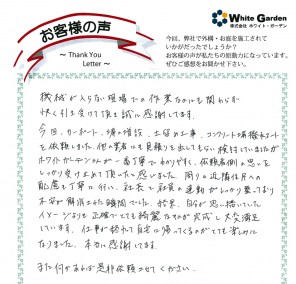 お客様の声
〜 Thank You
Letter 〜
White Garden
株式会社 ホワイト・ガーデン
今回、弊社で外構・お庭を施工されて
いかがだったでしょうか？
お客様の声が私たちの原動力になっています。
ぜひご感想をお聞かせ下さい。
機械が入らない現場での作業なのにも関わらず
快く引き受けて頂き誠に感謝します。
今回、カーポート、塀の増設、土留め工事、コンクリート補修
を依頼しました。他の業者にも見積りを出してもらい検討していましたが
ホワイトガーデンさんが一番丁寧でわかりやすく、依頼者側の思いを
しっかり受け止めて頂いたと感じました。周りの近隣住民への
配慮も丁寧に行い、社長と社員の連動がしっかり整っており
不安が解消された瞬間でした。結果、自分が思い描いていた
イメージよりも正確でとても綺麗なものが完成し大変満足
しています。仕事が終わって自宅に帰ってくるのがとても楽しみに
なりました。本当に感謝してます。
また何かあれば是非依頼させてください。